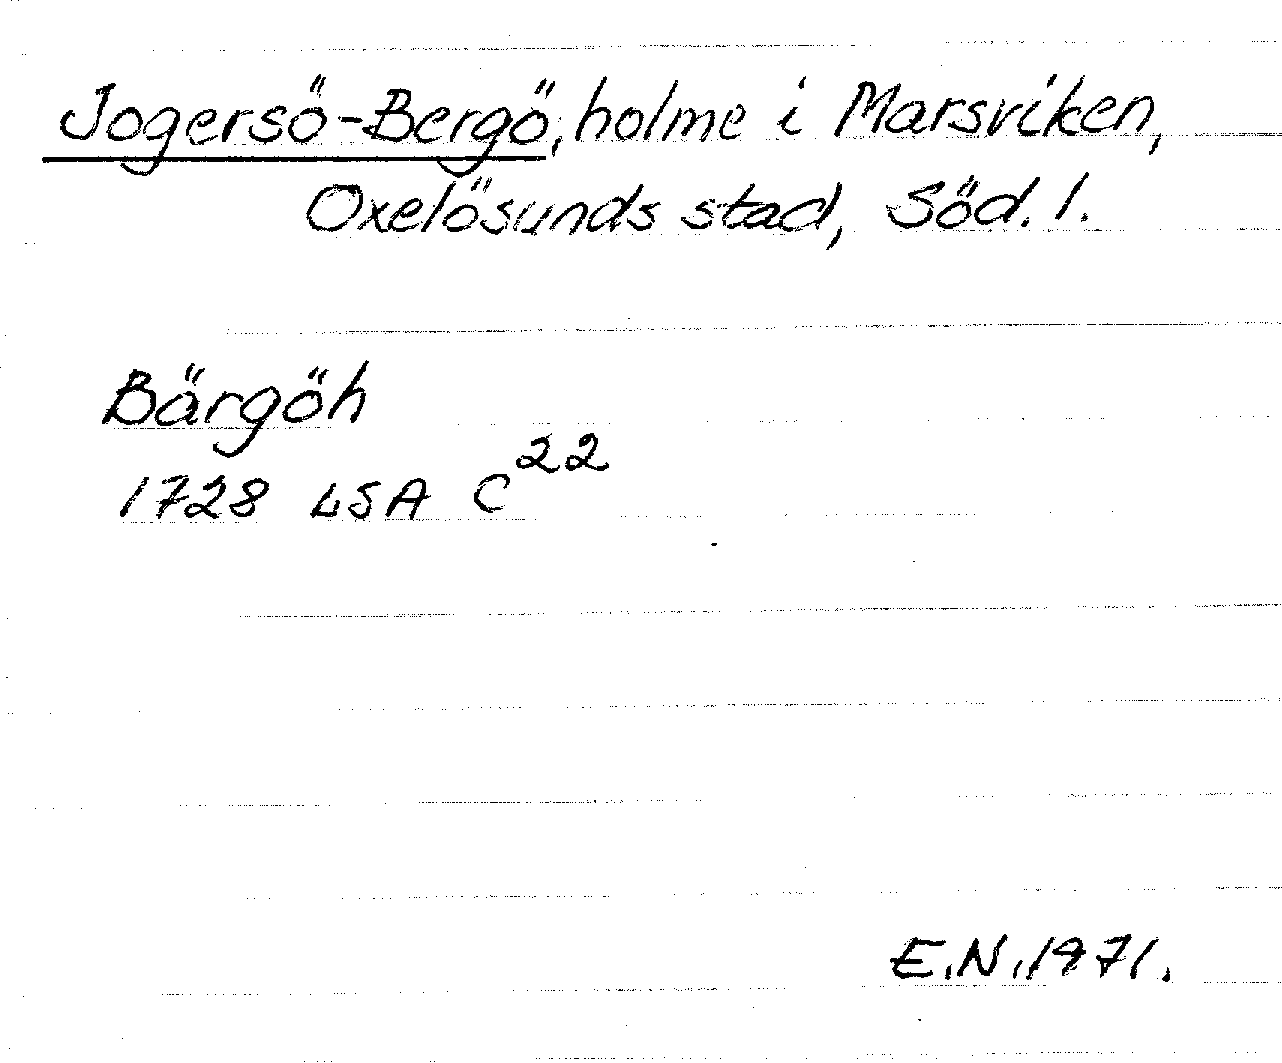 Jogersö-Bergö, holme i Marsviken,
Oxelösunds stad, Söd. l.
Bärgöh
1728 LSA C²²
E.N. 1971.